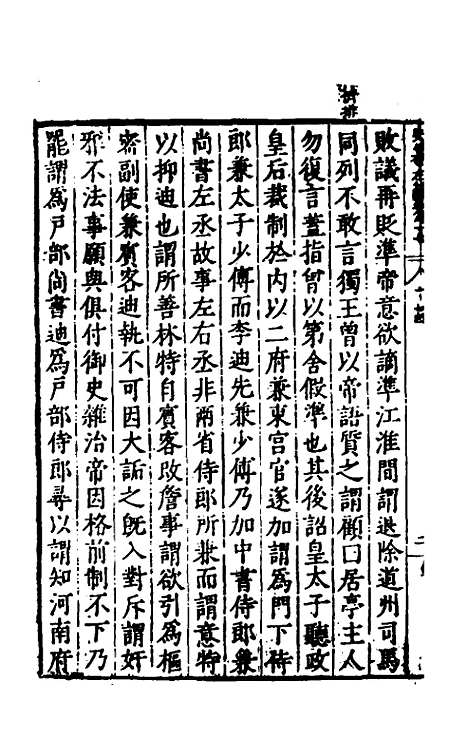 敗議再貶準帝意欲謫準江淮間謂退除道州司馬
同列不敢言獨王曾以帝語質之謂顧曰居亭主人
勿復言蓋指曾以第舍假準也其後詔皇太子聽政
皇后裁制於内以二府兼東宫官遂加謂爲門下侍
郎兼太子少傅而李迪先兼少傅乃加中書侍郎兼
尚書左丞故事左右丞非兩省侍郎所兼而謂意特
以抑迪也謂所善林特自賓客改詹事謂欲引爲樞
密副使兼賓客迪執不可因大詬之旣入對斥謂奸
邪不法事願與俱付御史雜治帝因格前制不下乃
罷謂爲戶部尚書迪爲戶部侍郎尋以謂知河南府